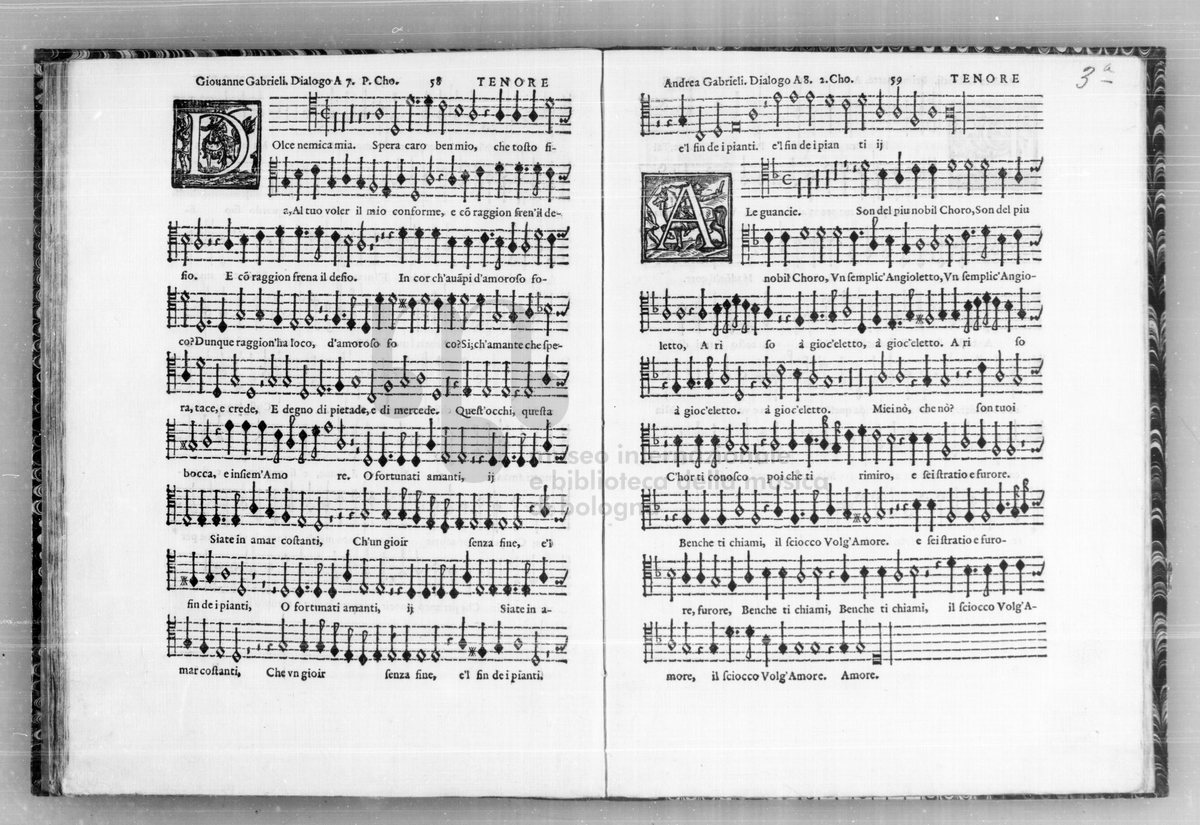 Giouanne Gabrieli. Dialogo A 7. P. Cho. 58 TENORE
D
Olce nemica mia. Spera caro ben mio, che tosto fi-
a, Al tuo voler il mio conforme, e cõ raggion fren'il de-
sio. E cõ raggion frena il desio. In cor ch'auãpi d'amoroso fo-
co? Dunque raggion'ha loco, d'amoroso fo co? Si; ch'amante che spe-
ra, tace, e crede, E degno di pietade, e di mercede. Quest'occhi, questa
bocca, e insiem'Amo re. O fortunati amanti, ij
Siate in amar costanti, Ch'un gioir senza fine, e'l
fin de i pianti, O fortunati amanti, ij Siate in a-
mar costanti, Che vn gioir senza fine, e'l fin de i pianti.
Andrea Gabrieli. Dialogo A 8. 2. Cho. 59 TENORE
3ª
e'l fin de i pianti. e'l fin de i pian ti ij
A
Le guancie. Son del piu nobil Choro, Son del piu
nobil Choro, Vn semplic'Angioletto, Vn semplic'Angio-
letto, A ri so à gioc'eletto, à gioc'eletto. A ri so
à gioc'eletto. à gioc'eletto. Miei nò, che nò? son tuoi
C'hor ti conosco poi che ti rimiro, e sei stratio e furore.
Benche ti chiami, il sciocco Volg'Amore. e sei stratio e furo-
re, furore, Benche ti chiami, Benche ti chiami, il sciocco Volg'A-
more, il sciocco Volg'Amore. Amore.
museo internazionale
e biblioteca della musica
di bologna